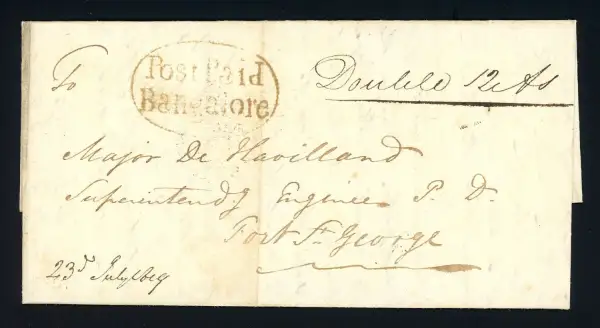 To
Post Paid
Bangalore
Double 12 As
Major De Havilland
Superintendg Engineer P. D.
Fort St. George
23d July 1819